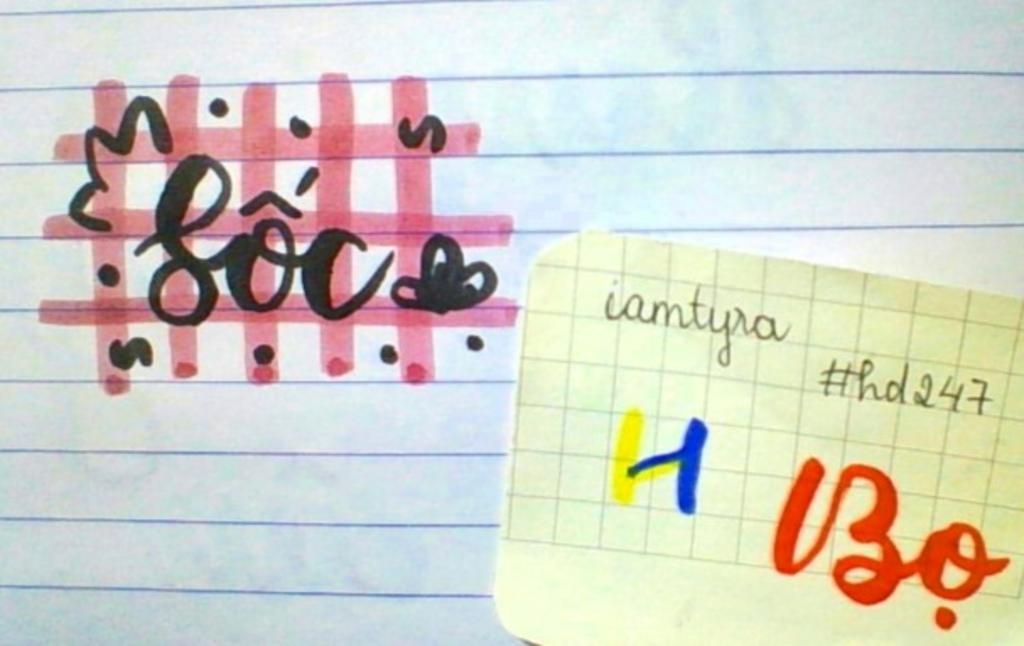 Sốc
iamtyra
#hd247
H
Bọ